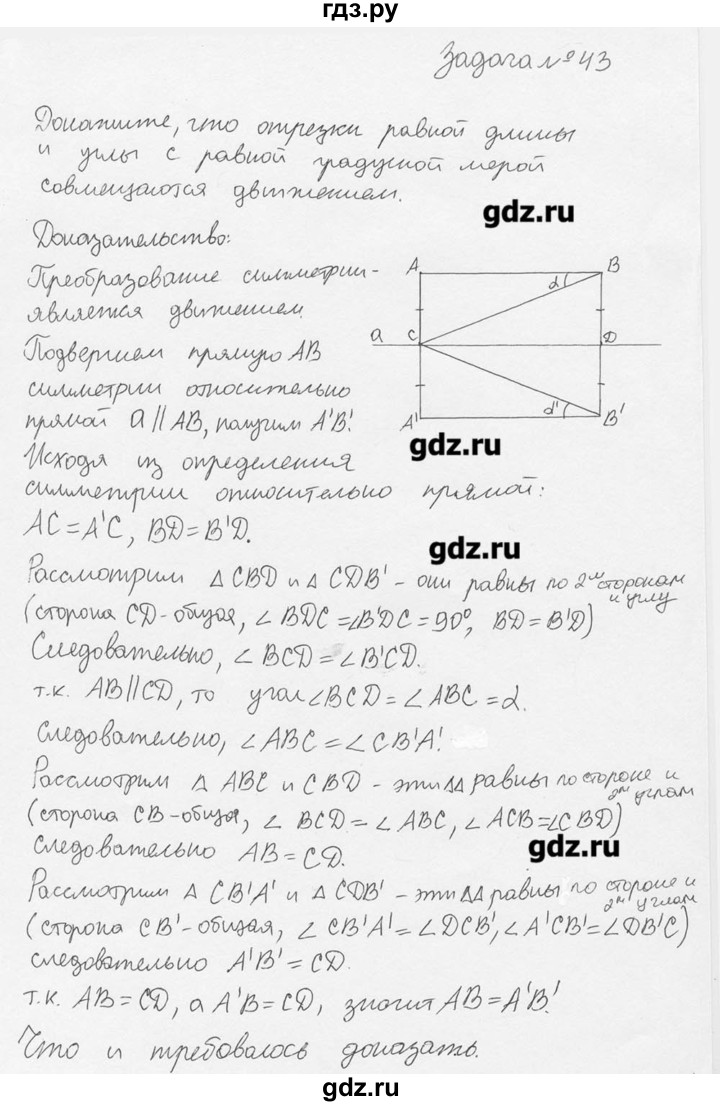 гдз.ру
Задача №43
Докажите, что отрезки равной длины
и углы с равной градусной мерой
совмещаются движением.
gdz.ru
Доказательство:
Преобразование симметрии -
является движением.
Подвергнем прямую AB
симметрии относительно
прямой a || AB, получим A'B'.
A B
α
a C D
α'
A' B'
gdz.ru
Исходя из определения
симметрии относительно прямой:
AC = A'C, BD = B'D.
gdz.ru
Рассмотрим △ CBD и △ CDB' - они равны по 2м сторонам
и углу
(сторона CD - общая, ∠ BDC = ∠B'DC = 90°, BD = B'D)
Следовательно, ∠ BCD = ∠ B'CD.
т.к. AB || CD, то угол ∠ BCD = ∠ ABC = α.
Следовательно, ∠ ABC = ∠ CB'A'.
Рассмотрим △ ABC и CBD - эти △△ равны по стороне и
2м углам
(сторона CB - общая, ∠ BCD = ∠ ABC, ∠ ACB = ∠CBD)
Следовательно AB = CD.
gdz.ru
Рассмотрим △ CB'A' и △ CDB' - эти △△ равны по стороне и
2м углам
(сторона CB' - общая, ∠ CB'A' = ∠DCB', ∠ A'CB' = ∠DB'C)
следовательно A'B' = CD.
т.к. AB = CD, а A'B = CD, значит AB = A'B'.
Что и требовалось доказать.
gdz.ru